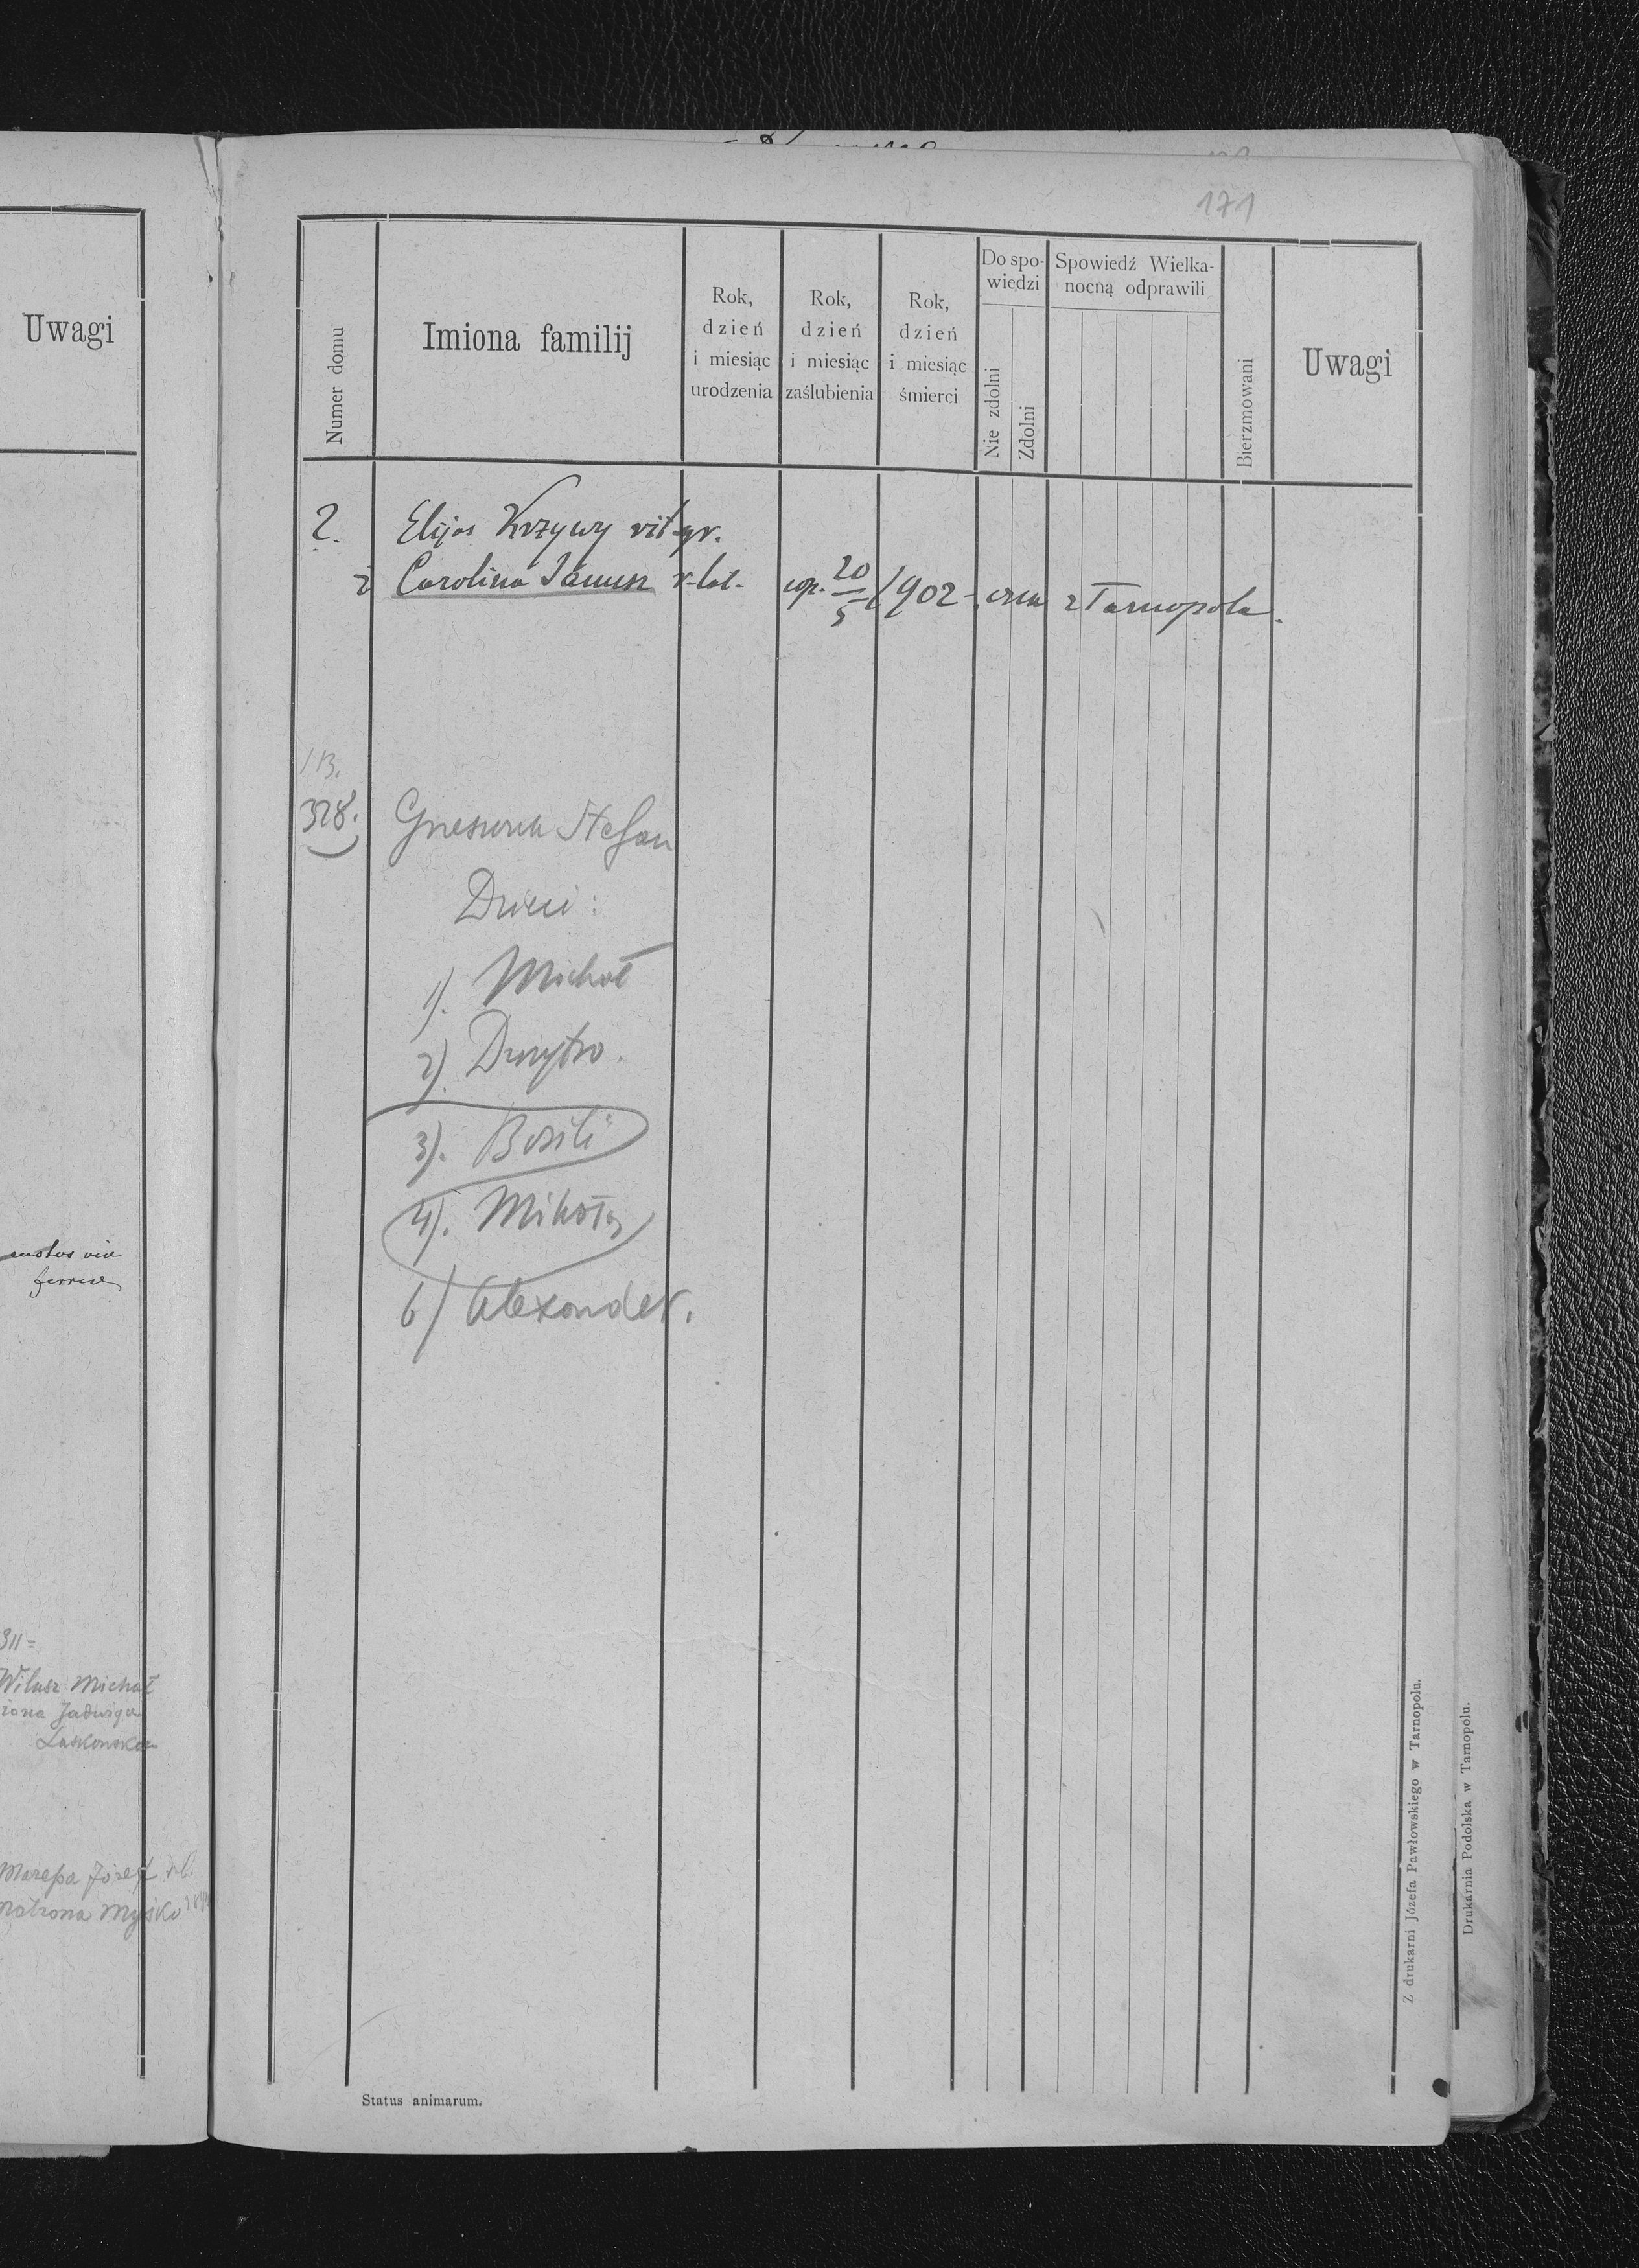 Uwagi
custos viae
ferreae
311 =
Wilusz Michał
żona Jadwiga
Laskowska
Mazepa Józef r.l.
Natrona Myśko
171
Numer domu
Imiona familij
Rok,
dzień
i miesiąc
urodzenia
Rok,
dzień
i miesiąc
zaślubienia
Rok,
dzień
i miesiąc
śmierci
Do spo-
wiedzi
Nie zdolni
Zdolni
Spowiedź Wielka-
nocną odprawili
Bierzmowani
Uwagi
?. Elijas Krzywy rit. gr.
i Carolina Janusz r. lat. cop. 20/5 1902 z Tarnopola.
1B.
328. Stefan
Dzieci:
1). Michał
2). Dmytro.
3). Basili
4). Mikołaj
6) Alexander.
Status animarum.
Z drukarni Józefa Pawłowskiego w Tarnopolu.
Drukarnia Podolska w Tarnopolu.